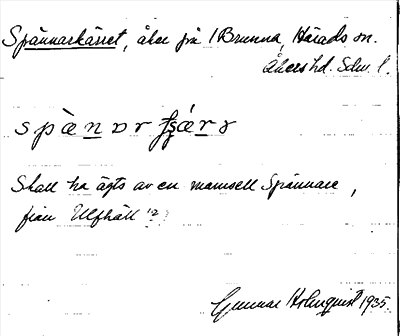 Spännarkärret, åker på 1 Brunna, Härads sn.
Åkers hd. Sdm. l.
Skall ha ägts av en mamsell Spännare,
från Ulfhäll?
Gunnar Holmquist 1935.